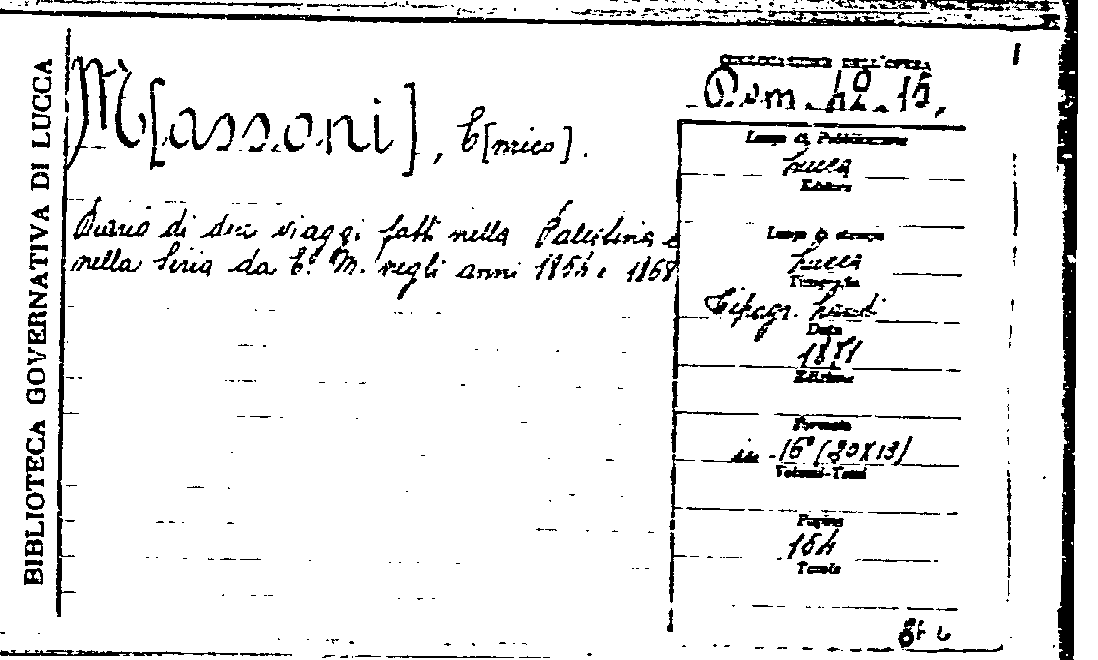 BIBLIOTECA GOVERNATIVA DI LUCCA
M[assoni], E[nrico].
Diario di due viaggi fatti nella Palestina e
nella Siria da E. M. negli anni 1854 e 1868
COLLOCAZIONE DELL'OPERA
Dom. 42. 15.
Luogo di Pubblicazione
Lucca
Editore
Luogo di stampa
Lucca
Tipografia
Tipogr. Landi
Data
Edizione
Formato
in-16° (20X13)
Volumi-Tomi
Pagine
164
Tavole